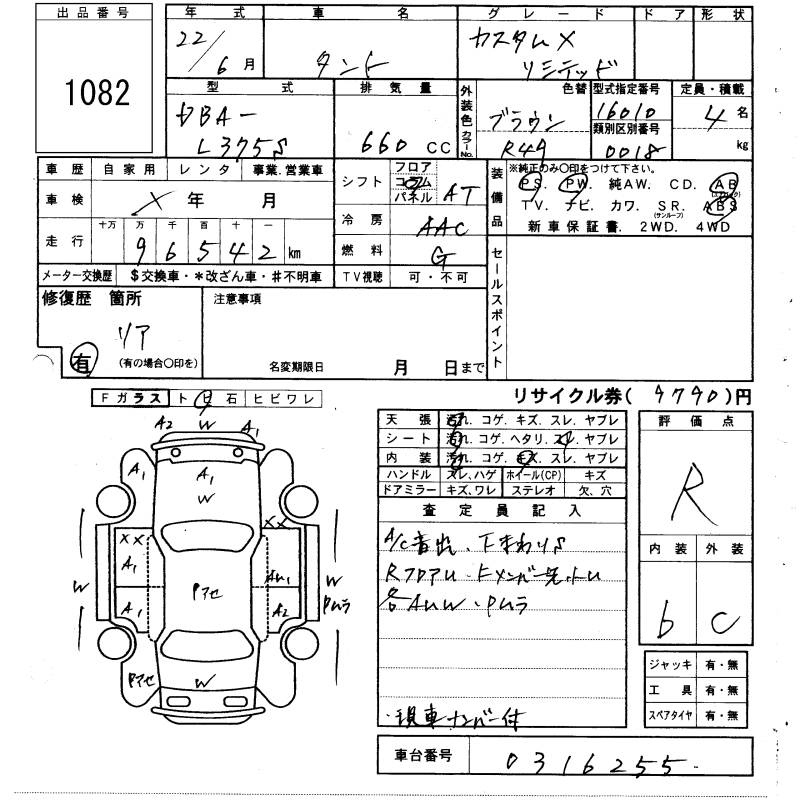 出品番号 年式 車名 グレード ドア 形状
1082
22/6月 タント カスタムX
リミテッド
型式 排気量 外装色 色替 型式指定番号 定員・積載
DBA- ブラウン 16010 4名
カラーNo. 類別区別番号
L375S 660 CC R49 0018 kg
車歴 自家用 レンタ 事業.営業車 シフト フロア 装備品 ※純正のみ〇印をつけて下さい。
コラム PS. PW. 純AW. CD. AB
車検 X年 月 パネル AT (エアバック)
TV. ナビ. カワ. SR. ABS
(サンルーフ)
走行 十万 万 千 百 十 一 冷房 AAC 新車保証書. 2WD. 4WD
96542 km 燃料 G セールスポイント
メーター交換歴 $交換車・*改ざん車・#不明車 TV視聴 可・不可
修復歴 箇所 注意事項
リア
有 (有の場合〇印を) 名変期限日 月 日まで
リサイクル券(9790)円
Fガラス トビ石 ヒビワレ
天張 汚れ.コゲ.キズ.スレ.ヤブレ 評価点
シート 汚れ.コゲ.ヘタリ.スレ.ヤブレ
内装 汚れ.コゲ.キズ.スレ.ヤブレ
ハンドル スレ、ハゲ ホイール(CP) キズ
ドアミラー キズ、ワレ ステレオ 欠、穴
R
査定員記入
A2 W A1
A1 A1
W
A/C音出.下まわりS 内装 外装
XX XX
A1 AU1
RフロアU.Fメンバー先.トU
W Pアセ W
各AUW.Pムラ b c
A1 A2 Pムラ
Pアセ W
ジャッキ 有・無
工具 有・無
スペアタイヤ 有・無
・現車ナンバー付
車台番号 0316255